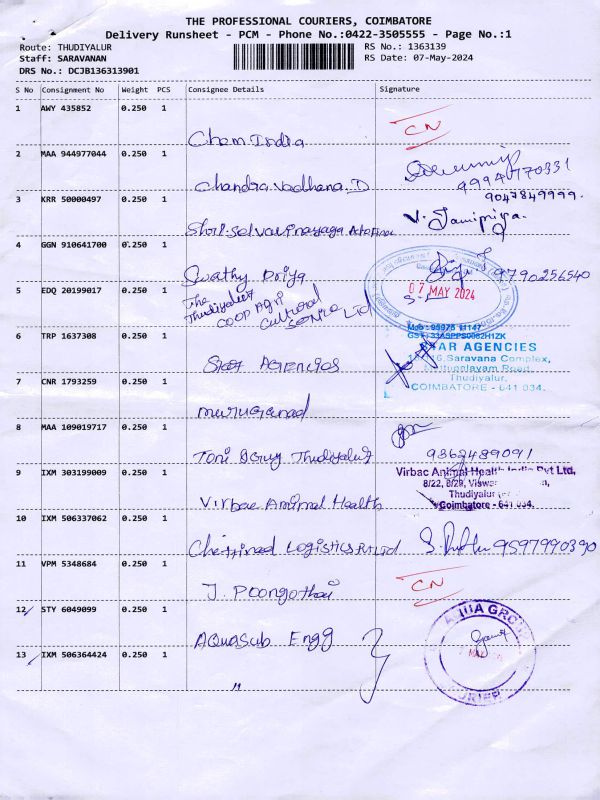 THE PROFESSIONAL COURIERS, COIMBATORE
Delivery Runsheet - PCM - Phone No.:0422-3505555 - Page No.:1
Route: THUDIYALUR
RS No.: 1363139
Staff: SARAVANAN
RS Date: 07-May-2024
DRS No.: DCJB136313901
S No Consignment No Weight PCS Consignee Details Signature
1 AWY 435852 0.250 1
Chem India CN
2 MAA 944977044 0.250 1
Chandra Vadhana. D 9994770331
3 KRR 50000497 0.250 1 9047849999.
Shri. Selvavinayaga V.
4 GGN 910641700 0.250 1
Swathy Priya 9790256540
5 EDQ 20199017 0.250 1 07 MAY 2024
The Thudiyalur
COOP Agri
Cultural
Service Ltd
6 TRP 1637308 0.250 1
Star AGENCIES
STAR AGENCIES
Saravana Complex,
Mettupalayam Road,
Thudiyalur,
COIMBATORE - 641 034.
7 CNR 1793259 0.250 1
Muruganad
8 MAA 109019717 0.250 1
Toni &Guy Thudiyalur 9362489091
9 IXM 303199009 0.250 1
Virbac Animal Health
Virbac Animal Health India Pvt Ltd,
8/22, 8/29,
Thudiyalur
Coimbatore - 641 034.
10 IXM 506337062 0.250 1
Chettinad Logistics Pvt Ltd 9597990390
11 VPM 5348684 0.250 1
J. Poongothai CN
12 STY 6049099 0.250 1
AQUASUB Engg
AQUA GROUP
13 IXM 506364424 0.250 1
"